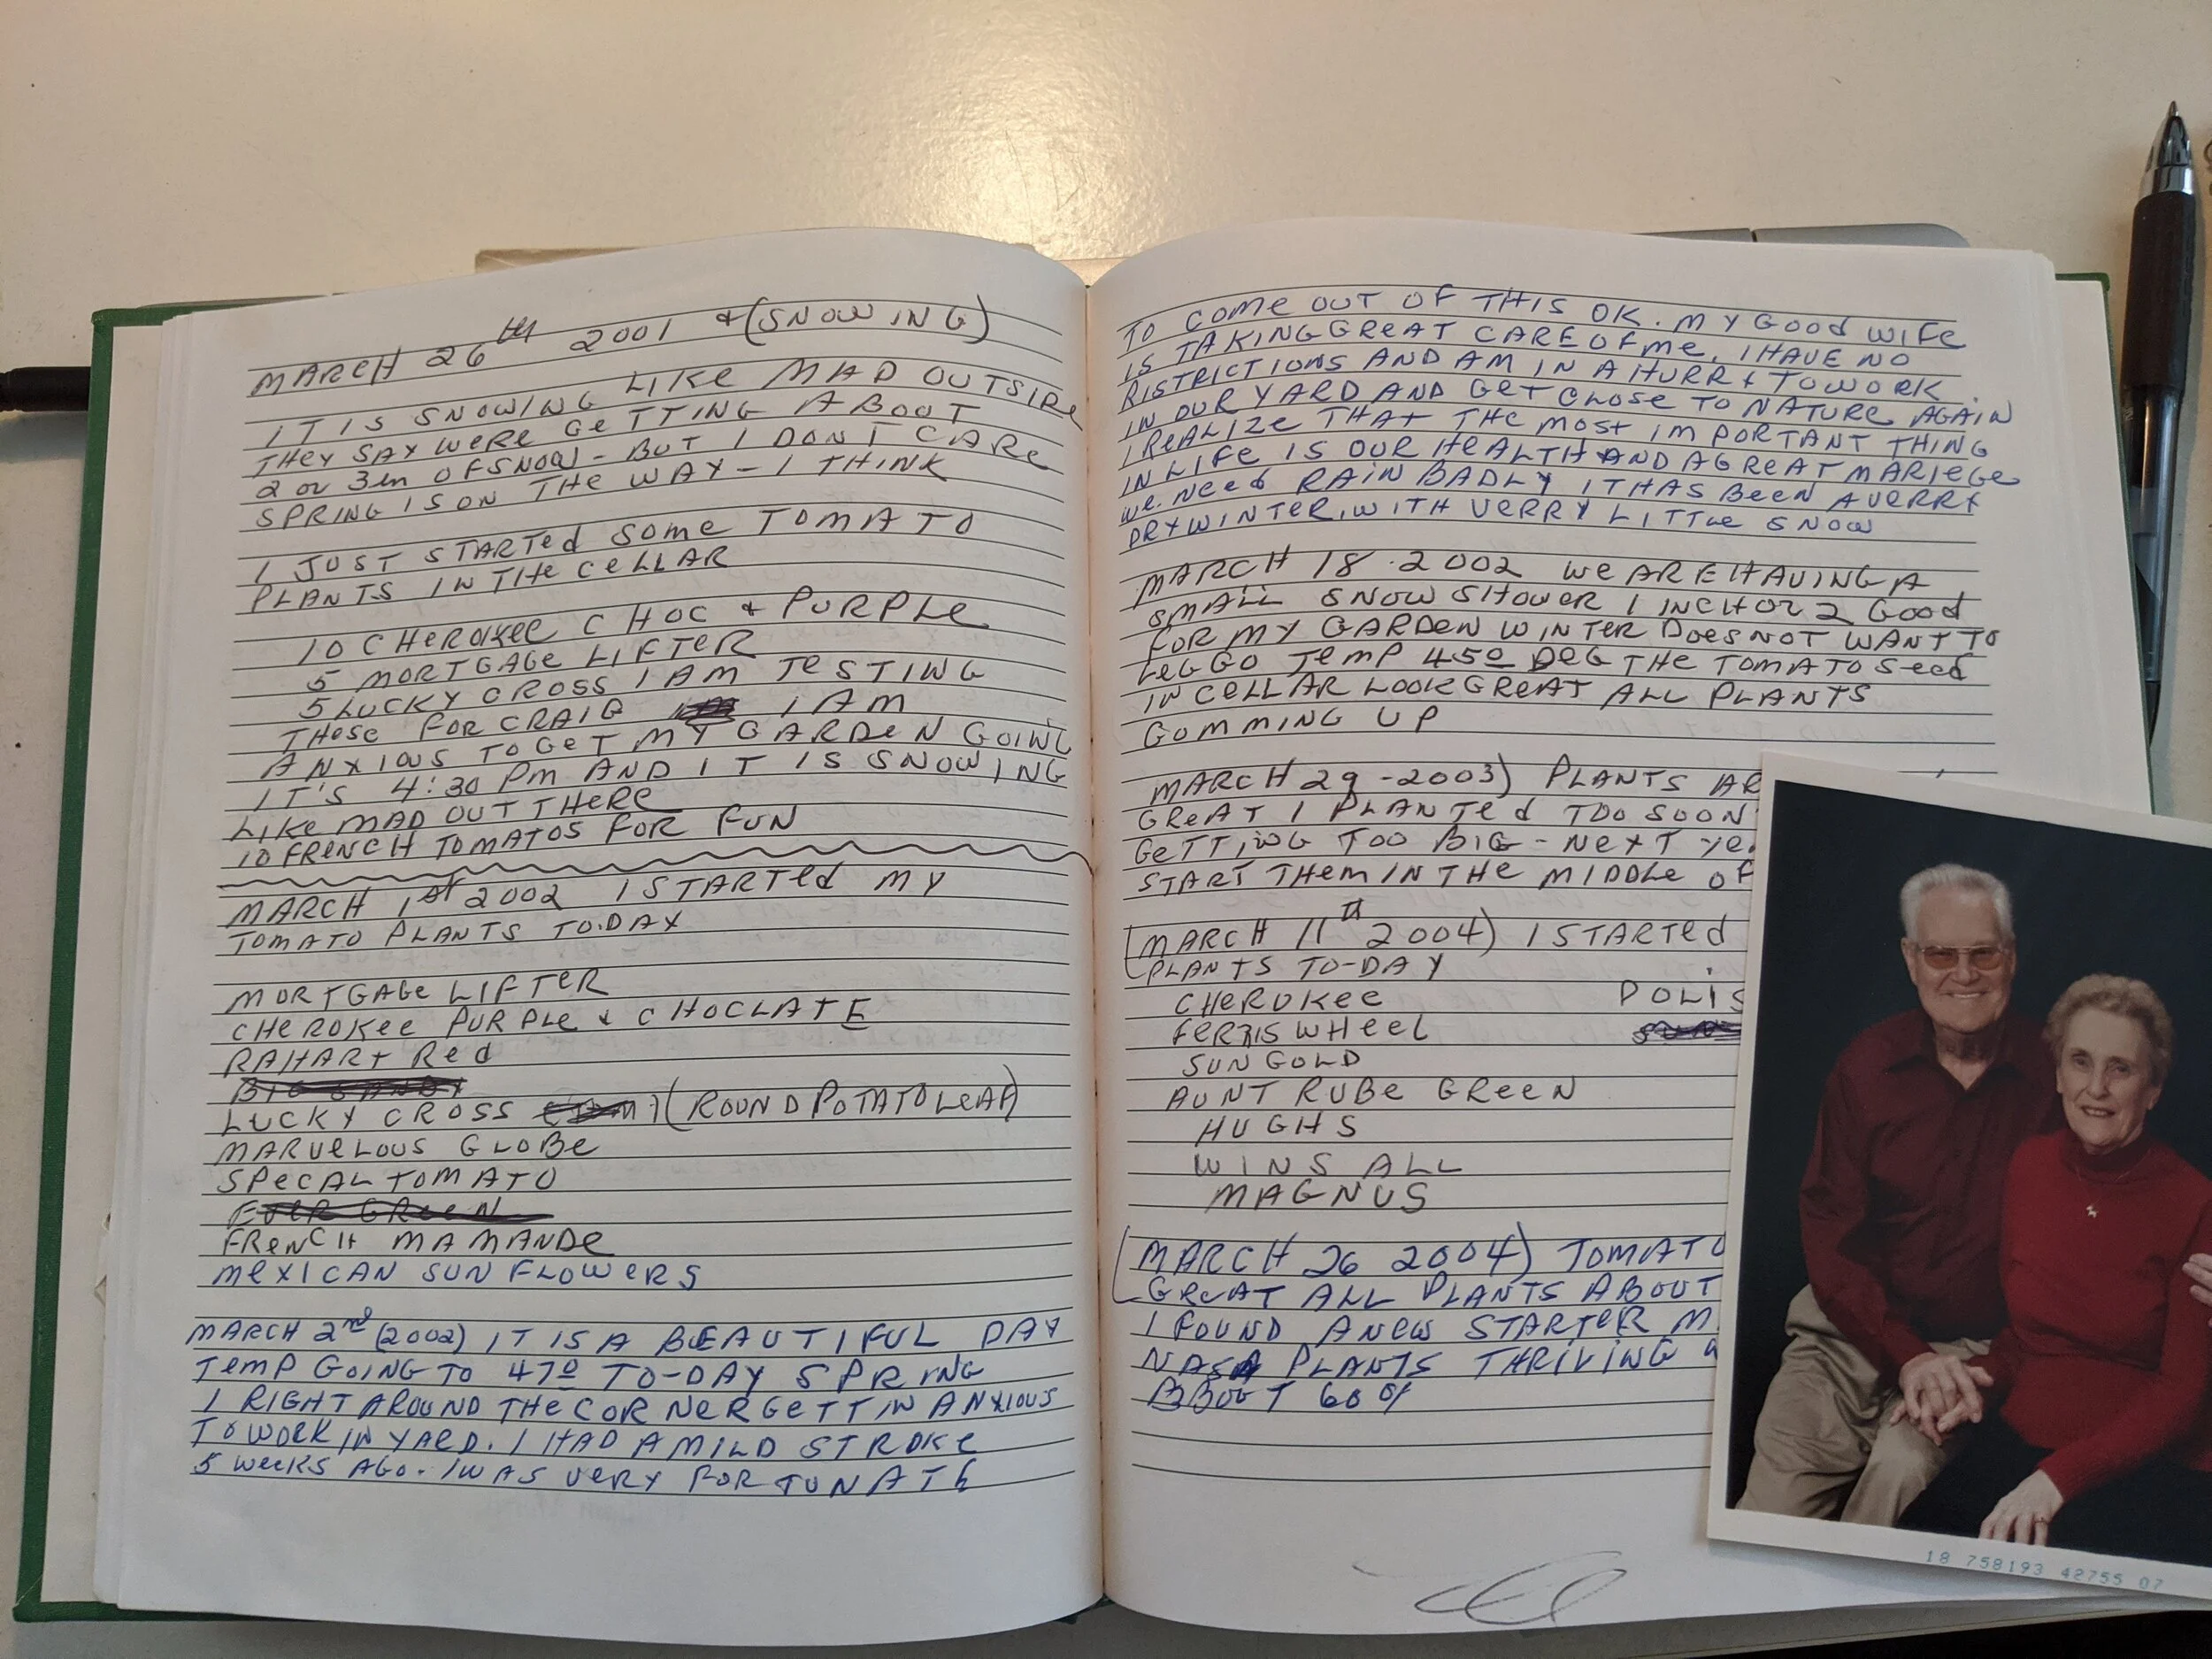 MARCH 26th 2001 & (SNOWING)
IT IS SNOWING LIKE MAD OUTSIDE
THEY SAY WERE GETTING ABOUT
2 or 3in OF SNOW - BUT I DONT CARE
SPRING IS ON THE WAY - I THINK
I JUST STARTED SOME TOMATO
PLANTS IN THE CELLAR
10 CHEROKEE CHOC & PURPLE
5 MORTGAGE LIFTER
5 LUCKY CROSS I AM TESTING
THOSE FOR CRAIG I AM
ANXIOUS TO GET MY GARDEN GOING
IT'S 4:30 PM AND IT IS SNOWING
LIKE MAD OUT THERE
10 FRENCH TOMATOS FOR FUN
MARCH 1st 2002 I STARTED MY
TOMATO PLANTS TO.DAY
MORTGAGE LIFTER
CHEROKEE PURPLE & CHOCLATE
RAHART RED
LUCKY CROSS (ROUND POTATO LEAF)
MARVELOUS GLOBE
SPECAL TOMATO
EVER GREEN
FRENCH MAMANDE
MEXICAN SUN FLOWERS
MARCH 2nd (2002) IT IS A BEAUTIFUL DAY
TEMP GOING TO 47º TO-DAY SPRING
I RIGHT AROUND THE CORNER GETTIN ANXIOUS
TO WORK IN YARD. I HAD A MILD STROKE
5 WEEKS AGO. I WAS VERY FORTUNATE
TO COME OUT OF THIS OK. MY GOOD WIFE
IS TAKING GREAT CARE OF ME. I HAVE NO
RISTRICTIONS AND AM IN A HURRY TO WORK
IN OUR YARD AND GET CLOSE TO NATURE AGAIN.
I REALIZE THAT THE MOST IMPORTANT THING
IN LIFE IS OUR HEALTH AND A GREAT MARIEGE
WE. NEED RAIN BADLY IT HAS BEEN A VERRY
DRY WINTER, WITH VERRY LITTLE SNOW
MARCH 18 . 2002 WE ARE HAVING A
SMALL SNOW SHOWER 1 INCH OR 2 GOOD
FOR MY GARDEN WINTER DOES NOT WANT TO
LEG GO TEMP 45º DEG THE TOMATO SEED
IN CELLAR LOOK GREAT ALL PLANTS
COMMING UP
MARCH 29 - 2003) PLANTS AR
GREAT I PLANTED TOO SOON
GETTING TOO BIG - NEXT YE
START THEM IN THE MIDDLE OF
(MARCH 11th 2004) I STARTED
PLANTS TO-DAY
CHEROKEE POLIS
FERRIS WHEEL
SUN GOLD
AUNT RUBE GREEN
HUGHS
WINS ALL
MAGNUS
(MARCH 26 2004) TOMATO
GREAT ALL PLANTS ABOUT
I FOUND A NEW STARTER M
PLANTS THRIVING
ABOUT 60%
18 758193 42755 07